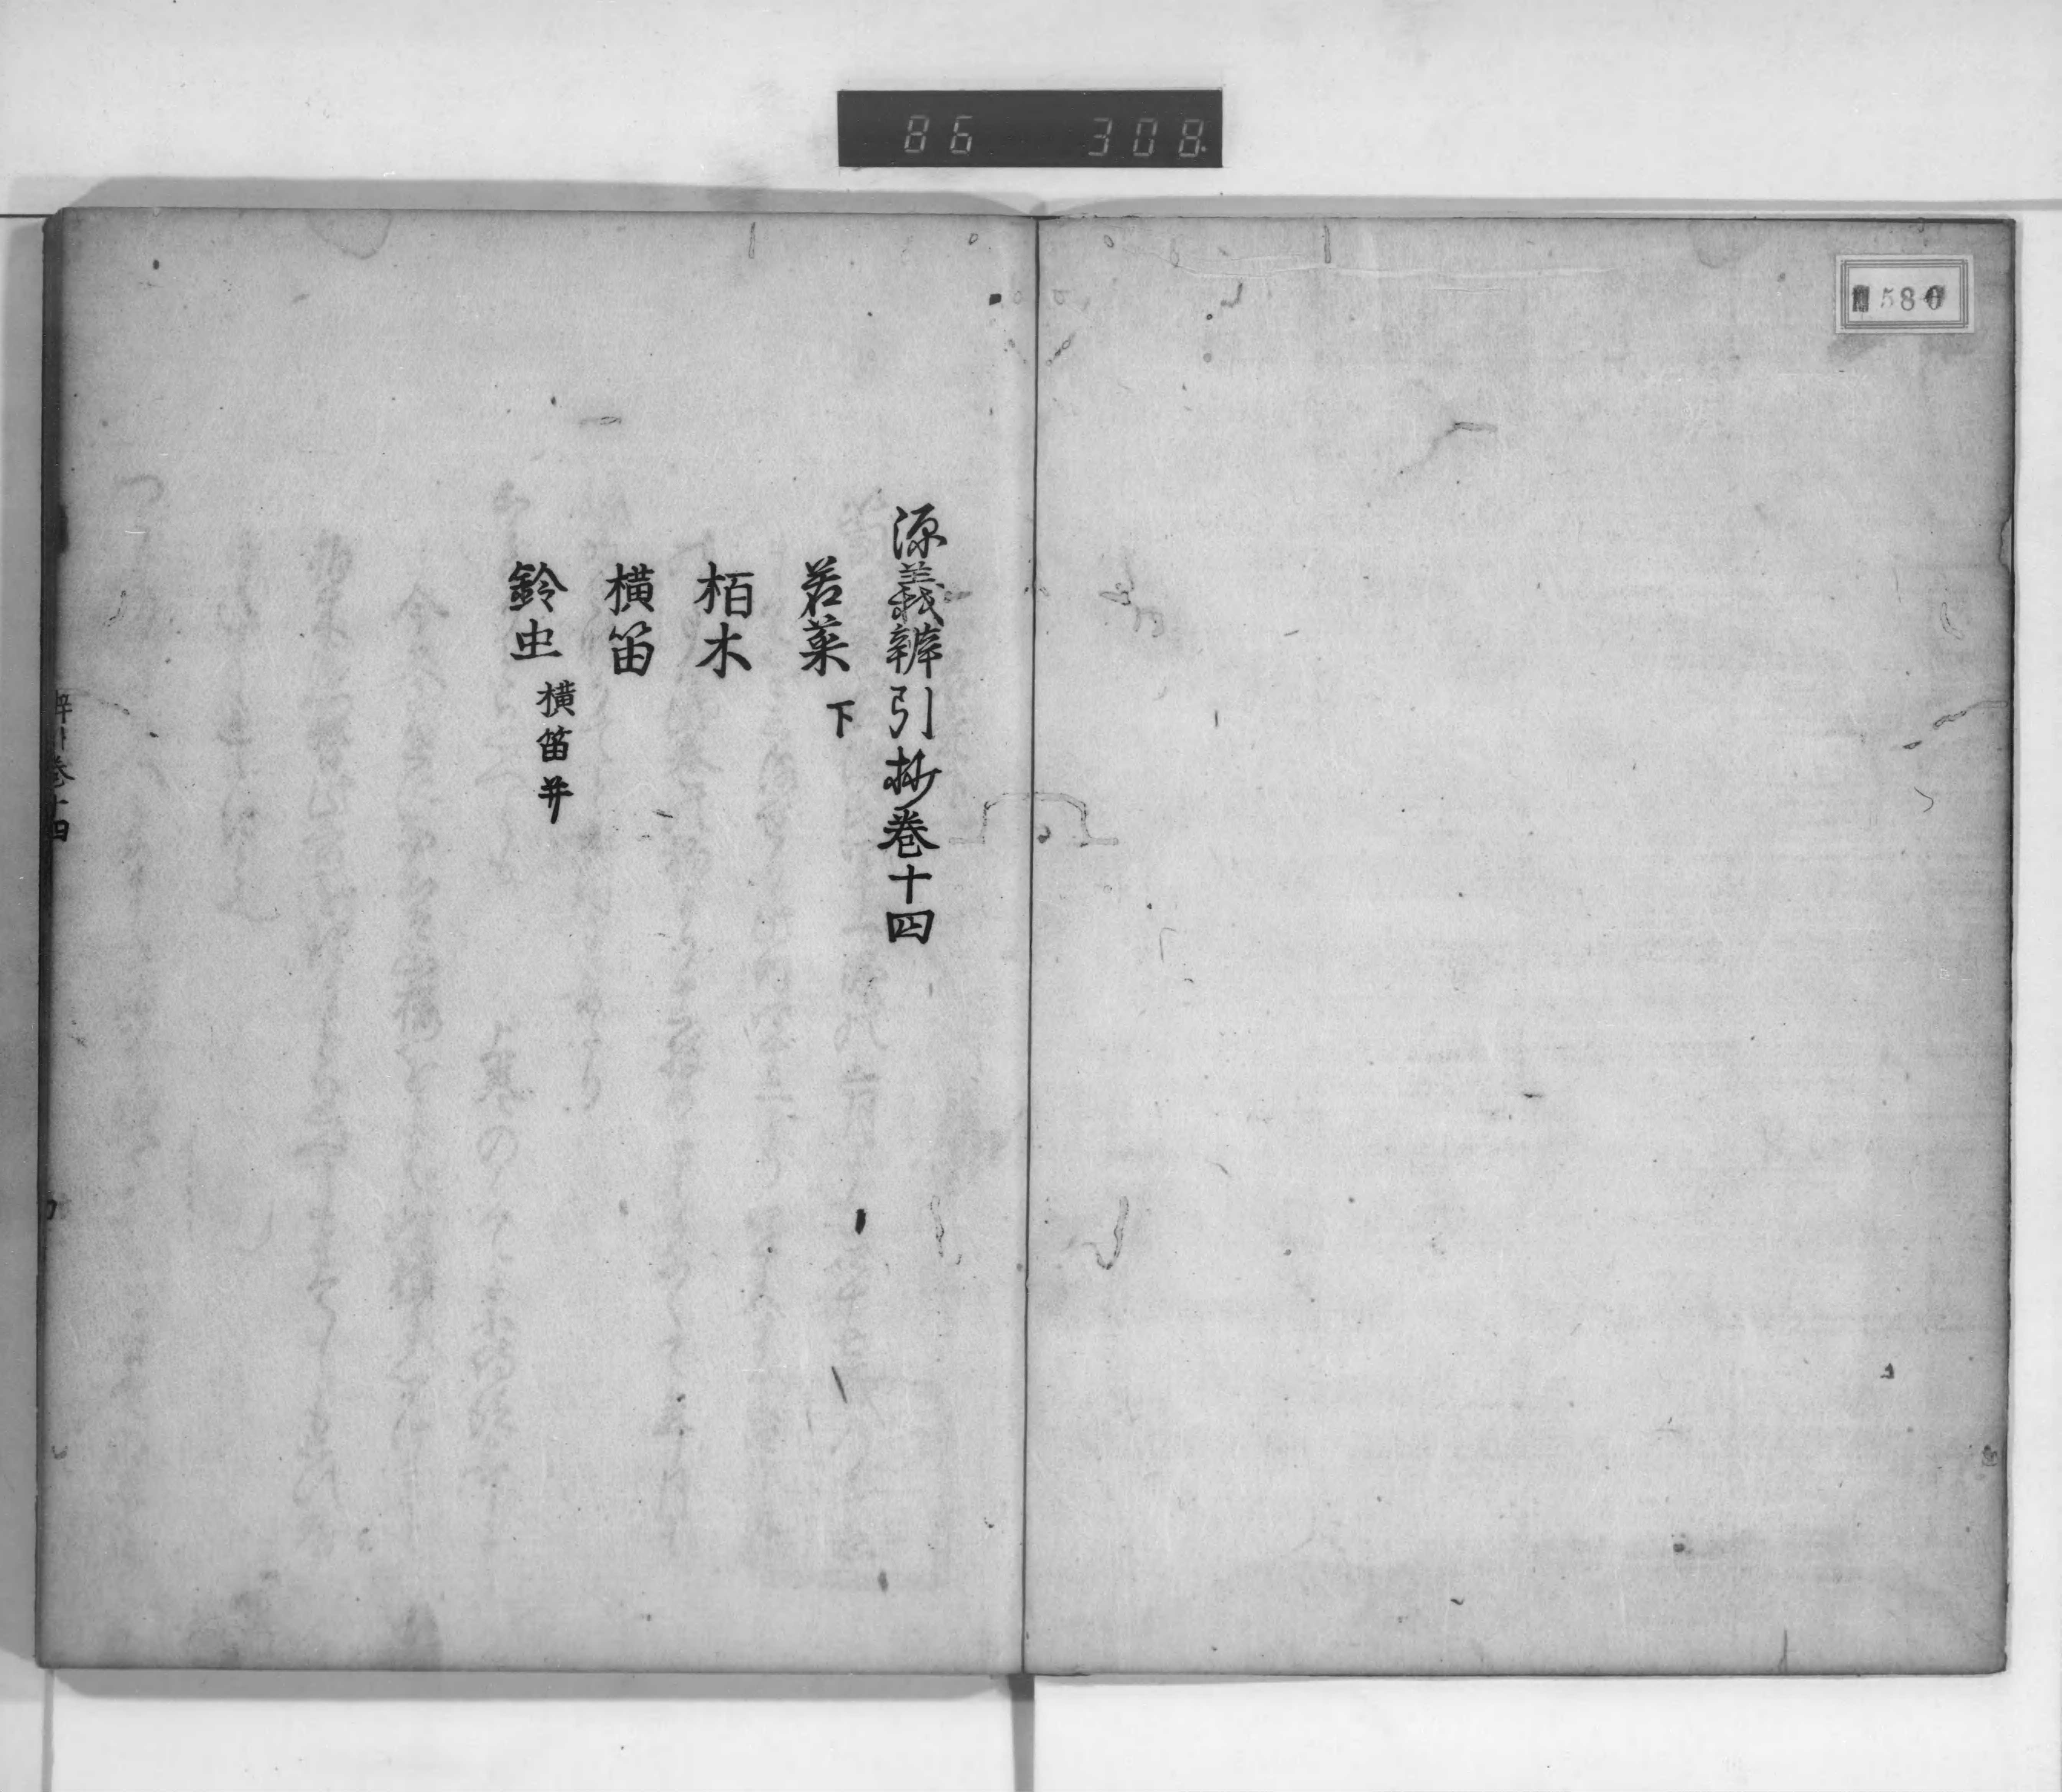 86 308
580
源義辨引抄巻十四
若菜 下
栢木
横笛
鈴虫 横笛并